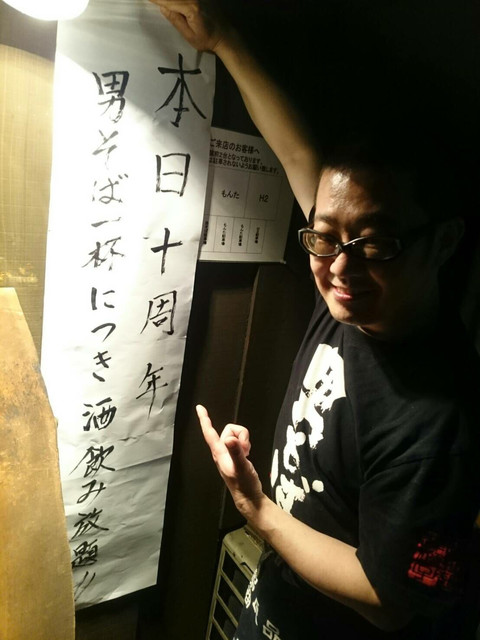 本日十周年
男そば一杯につき酒飲み放題!!
ご来店のお客様へ
もんた
H2
男そば